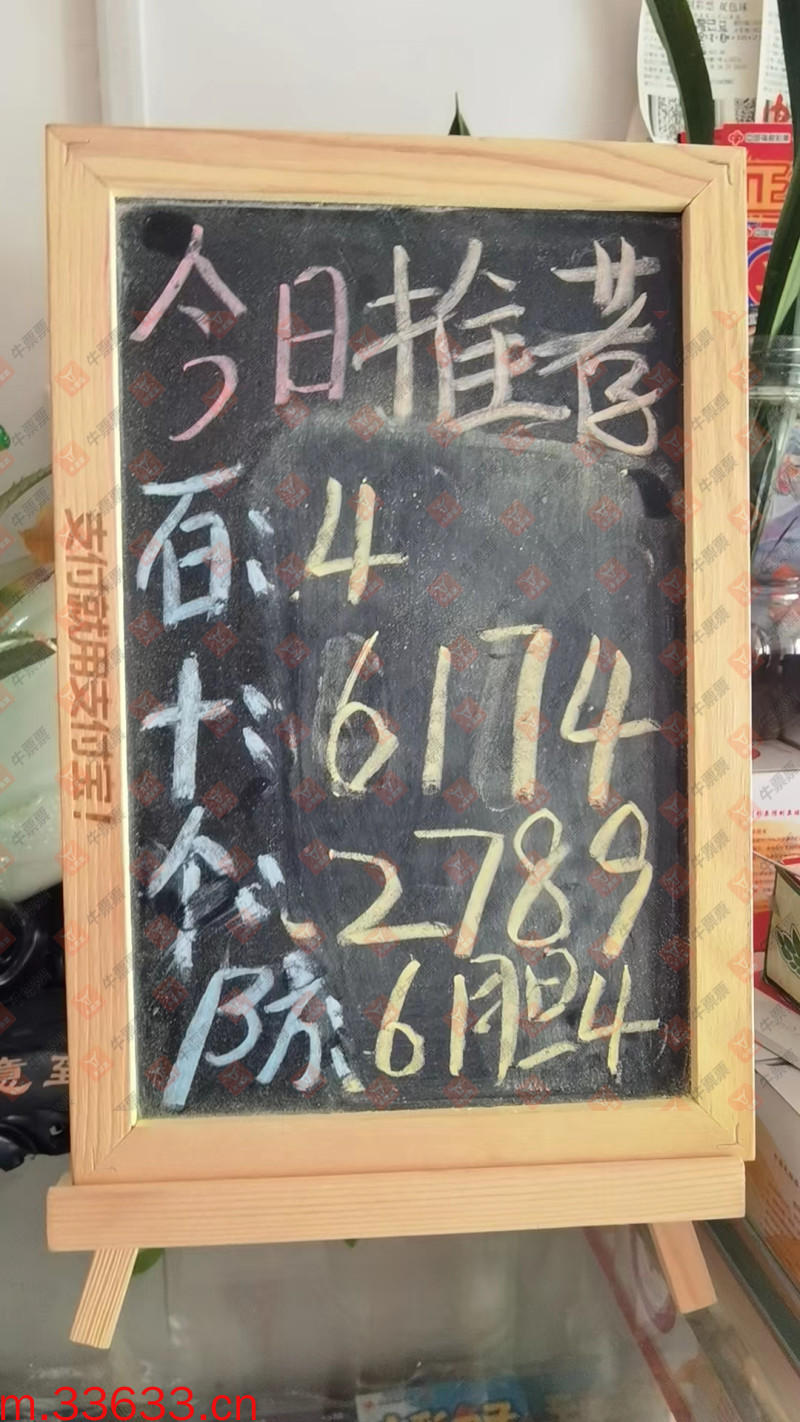 今日推荐
百: 4
十: 6174
个: 2789
防: 61胆4
支付就用支付宝!
意至
正
牛票票
m.33633.cn